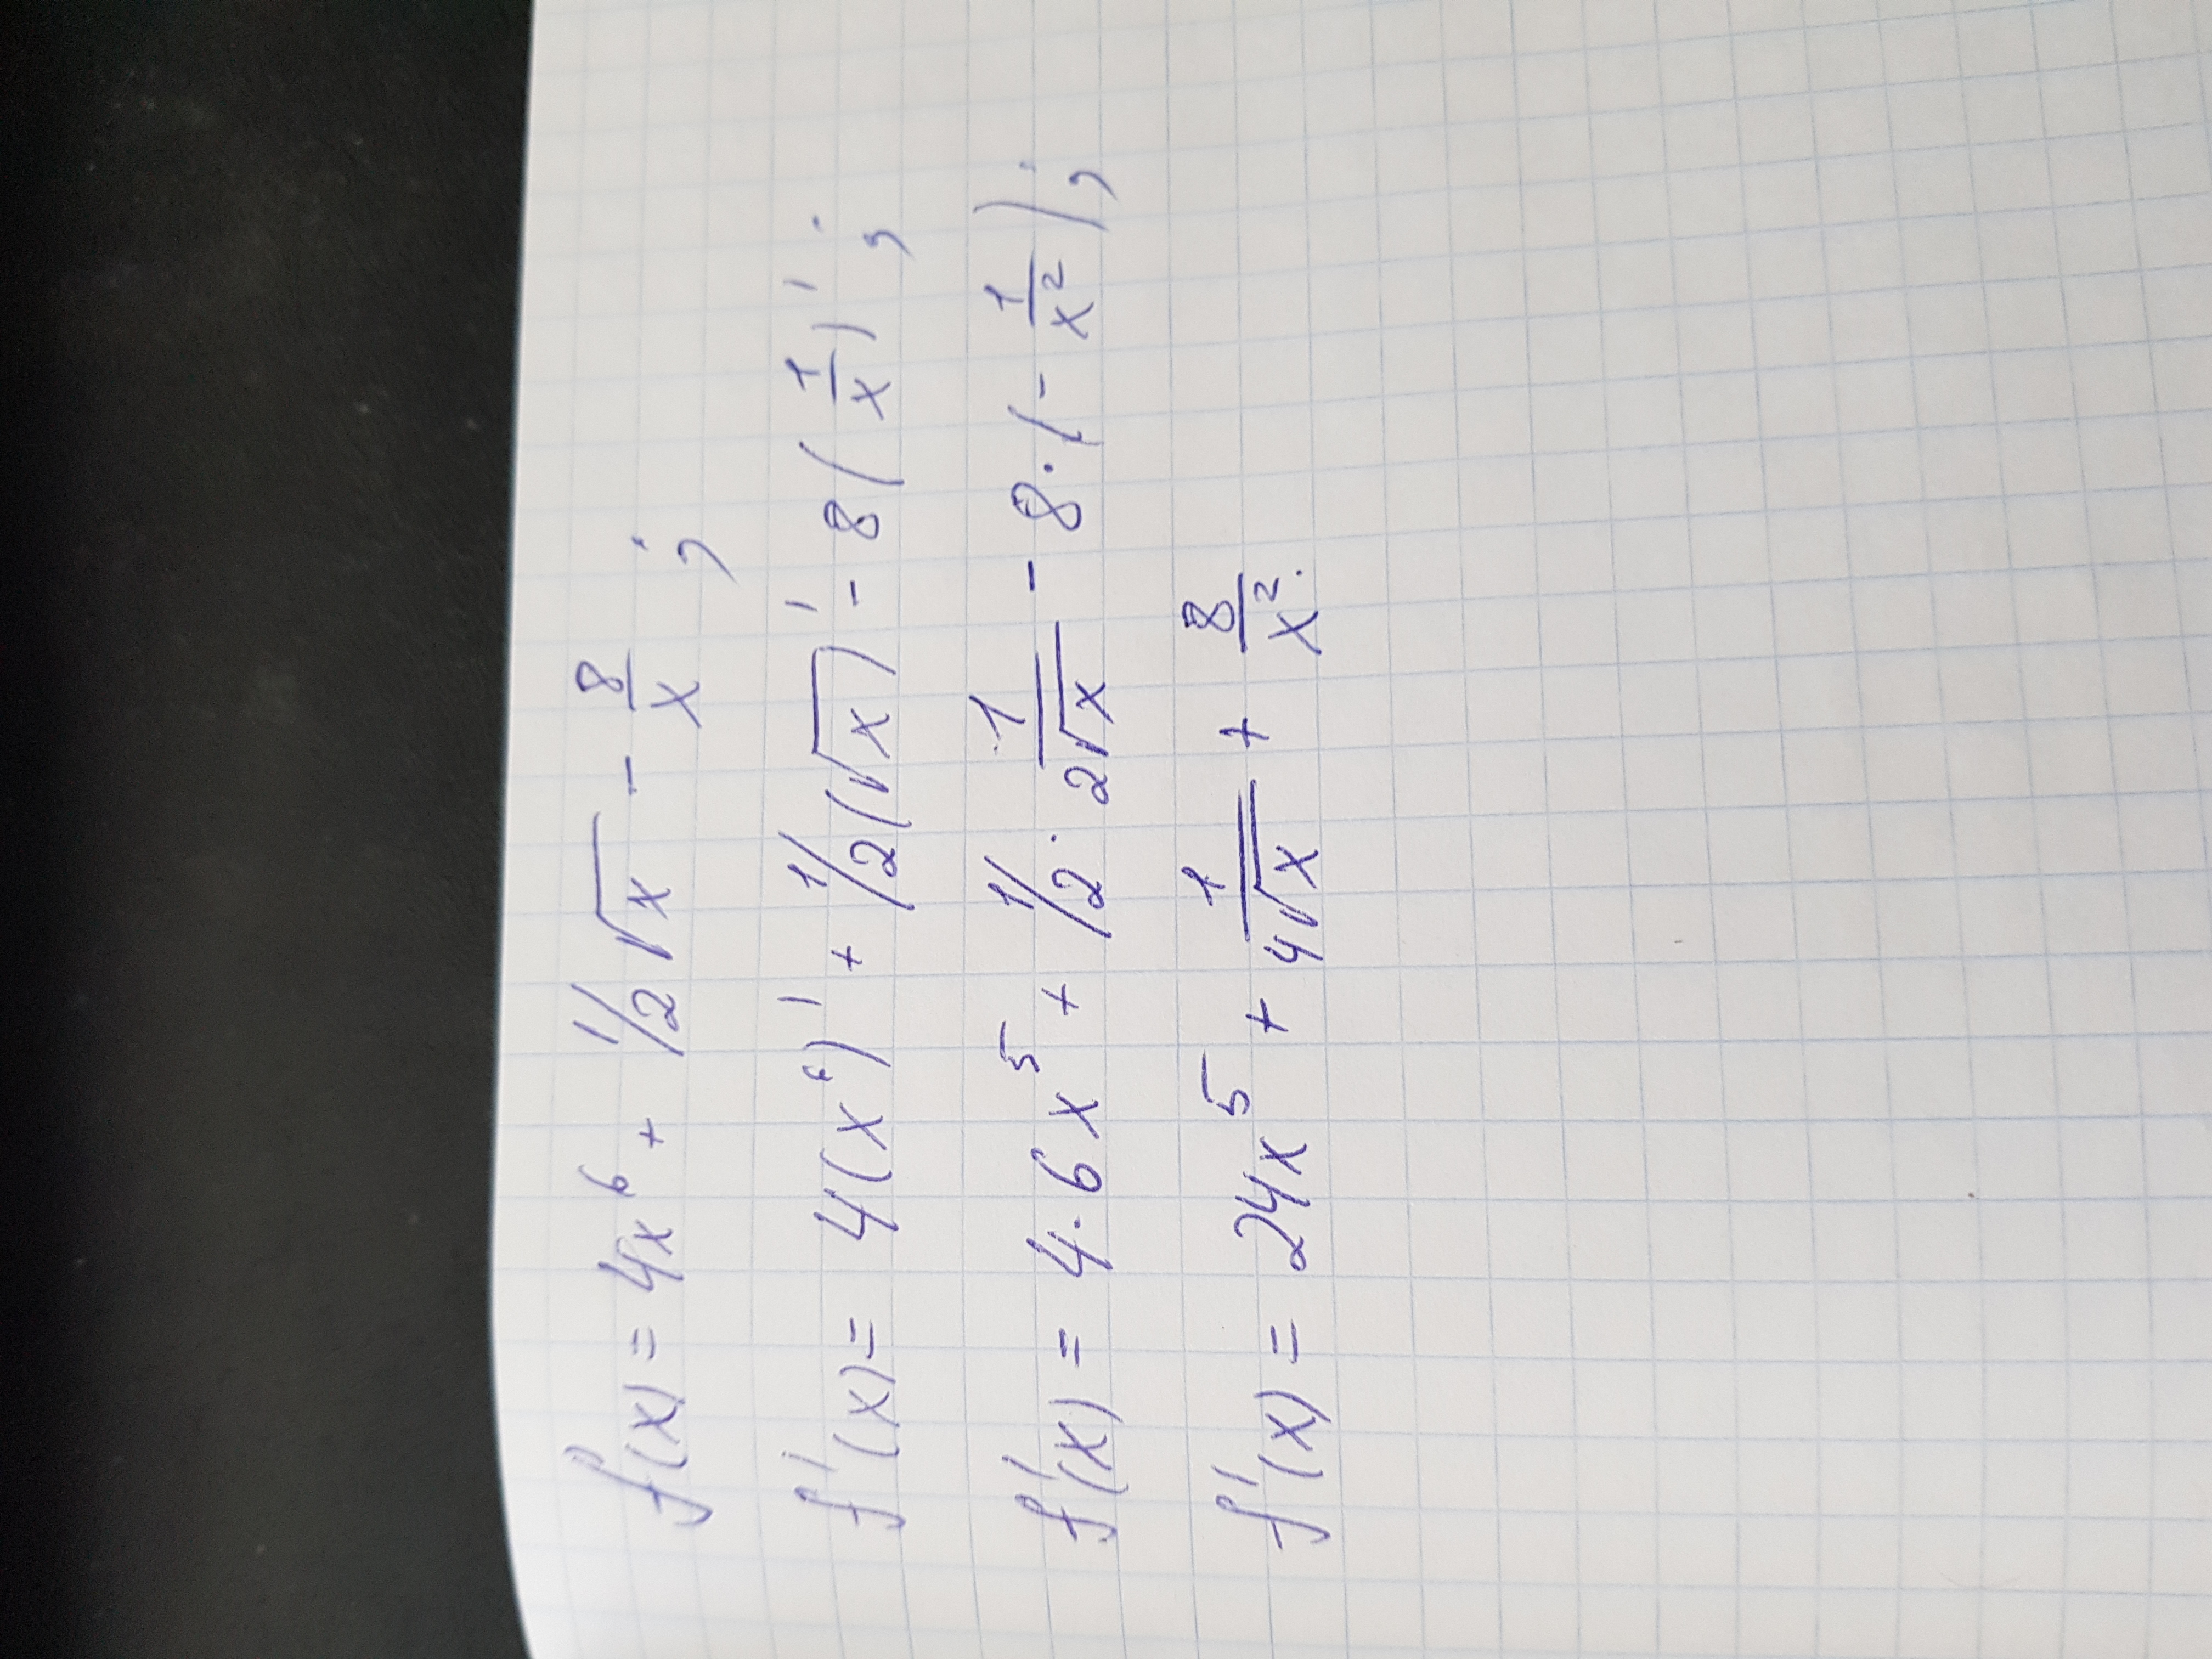 f(x) = 4x⁶ + 1/2 √x - 8/x ;
f'(x) = 4(x⁶)' + 1/2 (√x)' - 8(1/x)' ;
f'(x) = 4·6x⁵ + 1/2 · 1/(2√x) - 8·(- 1/x²) ;
f'(x) = 24x⁵ + 1/(4√x) + 8/x².